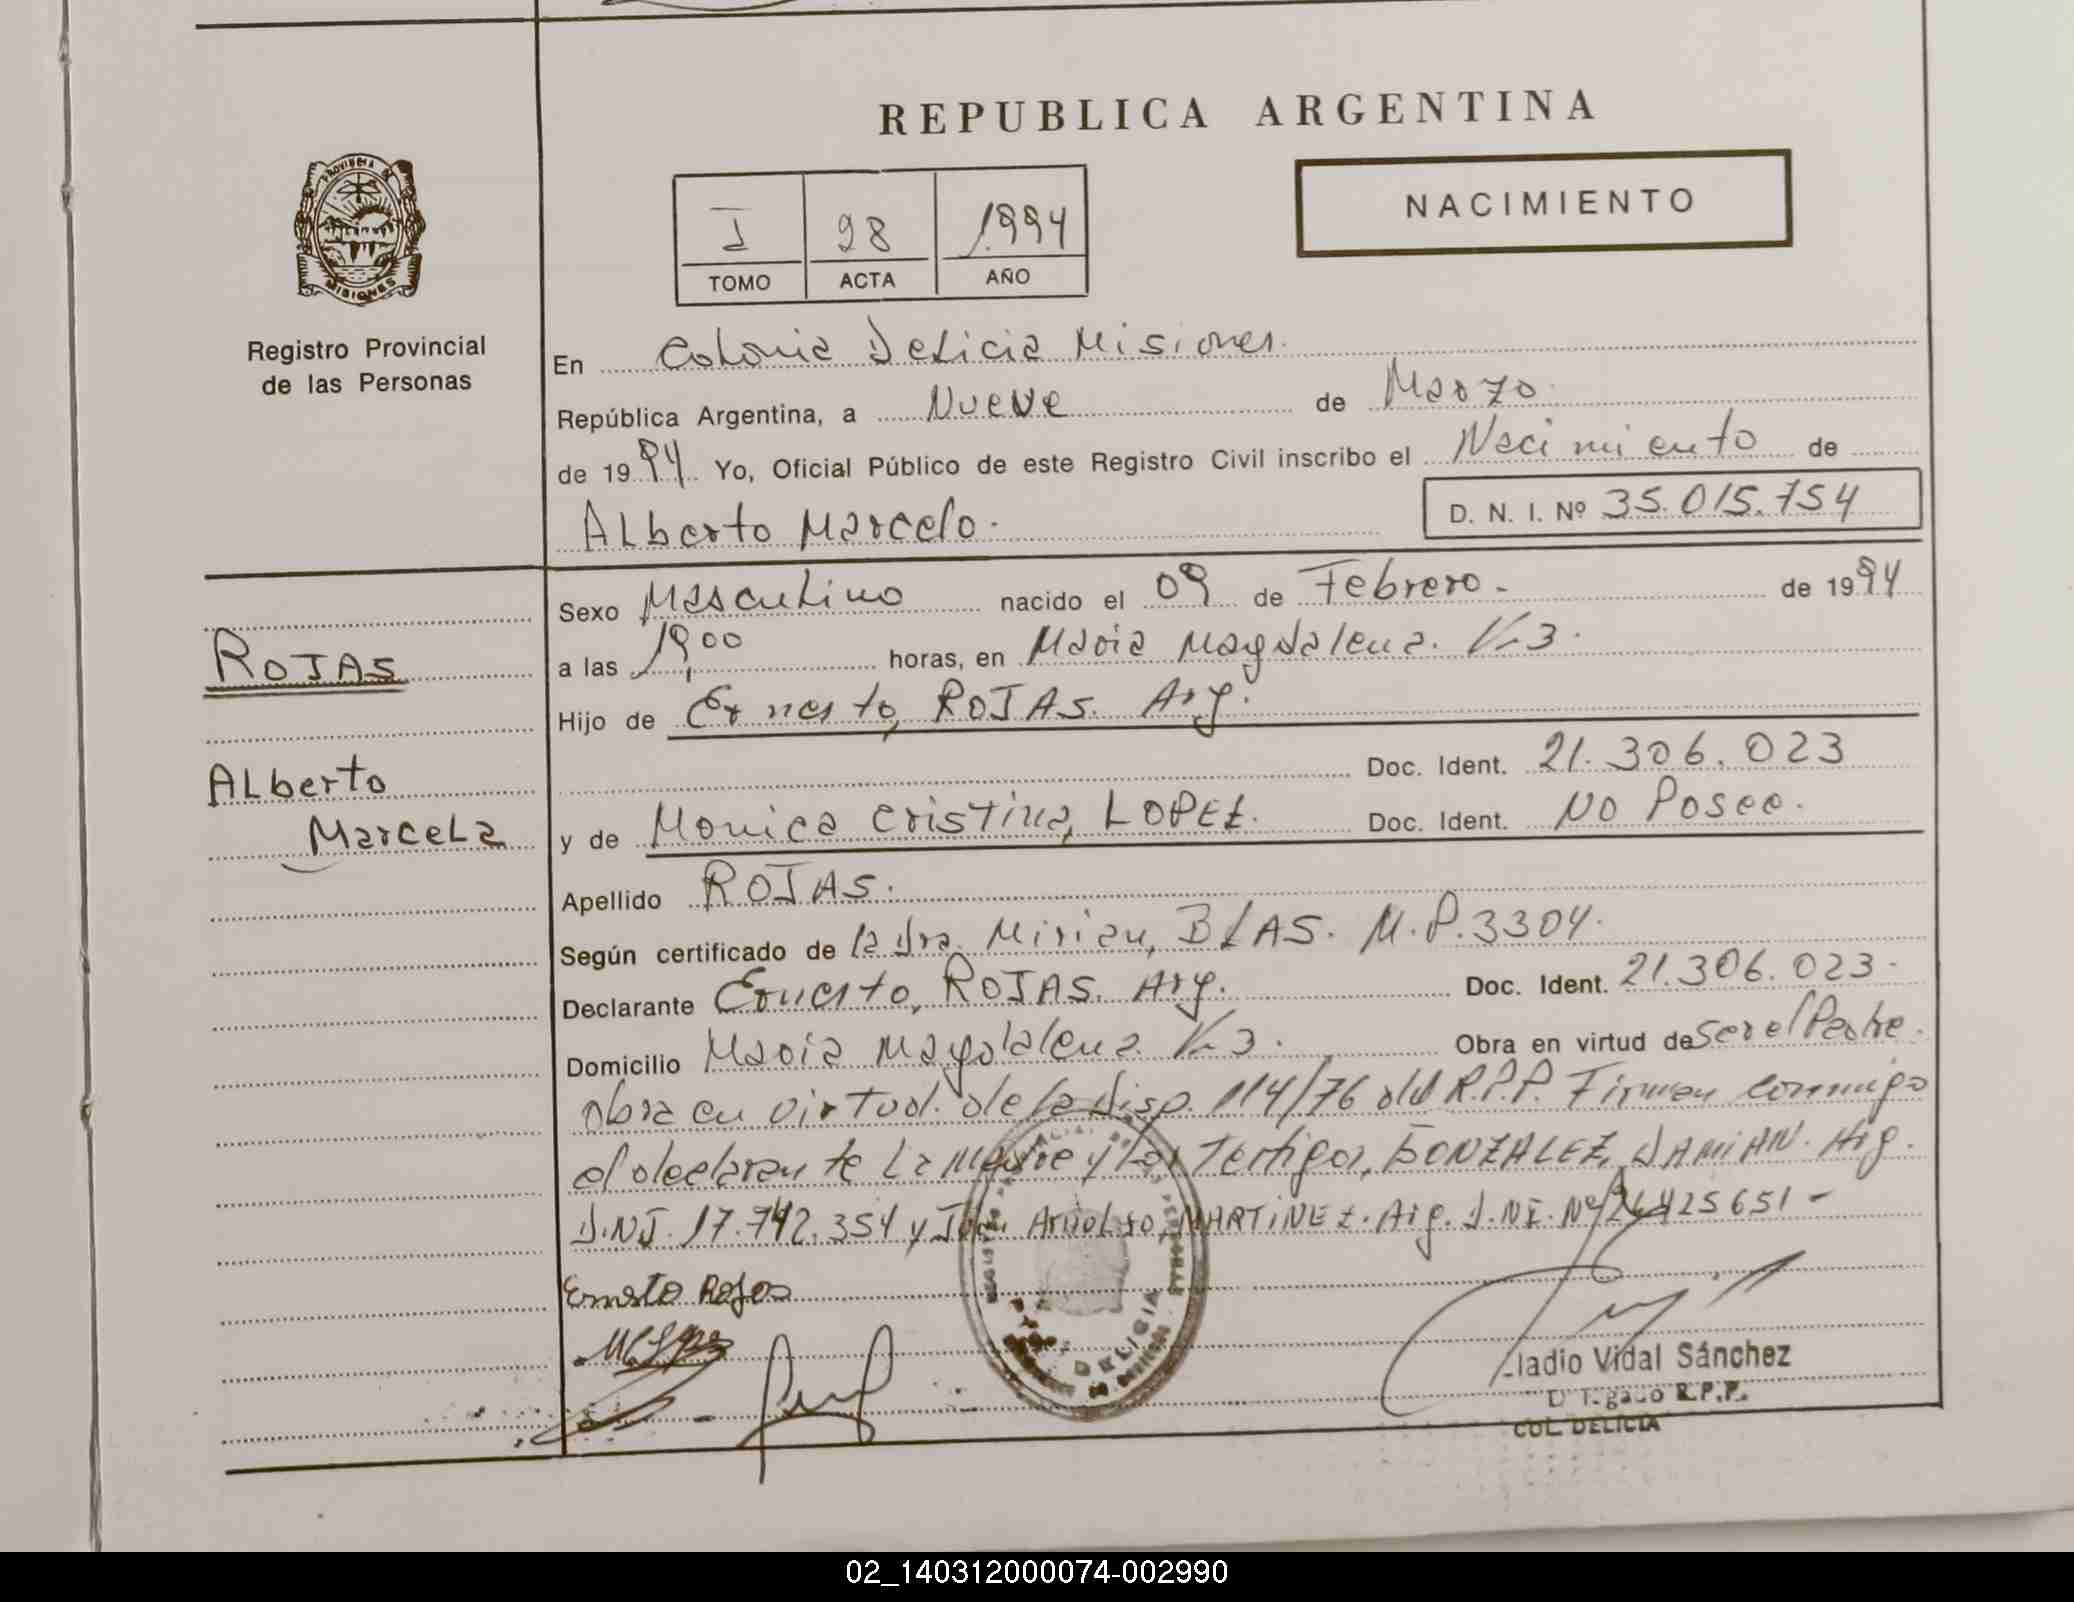 REPUBLICA ARGENTINA
PROVINCIA DE
MISIONES
Registro Provincial
de las Personas
NACIMIENTO
I 98 1994
TOMO ACTA AÑO
En Colonia Delicia Misiones.
República Argentina, a Nueve de Marzo.
de 1994. Yo, Oficial Público de este Registro Civil inscribo el Nacimiento de
Alberto Marcelo. D. N. I. Nº 35.015.754
Sexo Masculino nacido el 09 de Febrero. de 1994
a las 19,00 horas, en Maria Magdalena. K-3.
Hijo de Ernesto, ROJAS. Arg.
Doc. Ident. 21.306.023
y de Monica Cristina, LOPEZ. Doc. Ident. No Posee.
Apellido ROJAS.
Según certificado de la Dra. Mirian, BLAS. M.P.3304.
Declarante Ernesto, ROJAS. Arg. Doc. Ident. 21.306.023-
Domicilio Maria Magdalena K-3. Obra en virtud de ser el Padre.
obra en virtud. de la Disp. 114/76 del R.P.P. Firman conmigo
el declarante La Madre y los Testigos, GONZALEZ, DAMIAN. Arg.
D.NI. 17.742.354 y Arnoldo, MARTINEZ. Arg. D.NI. Nº 425651-
ROJAS
Alberto
Marcela
Ernesto Rojas
DELICIA
ladio Vidal Sánchez
R.P.P.
COL. DELICIA
02_140312000074-002990